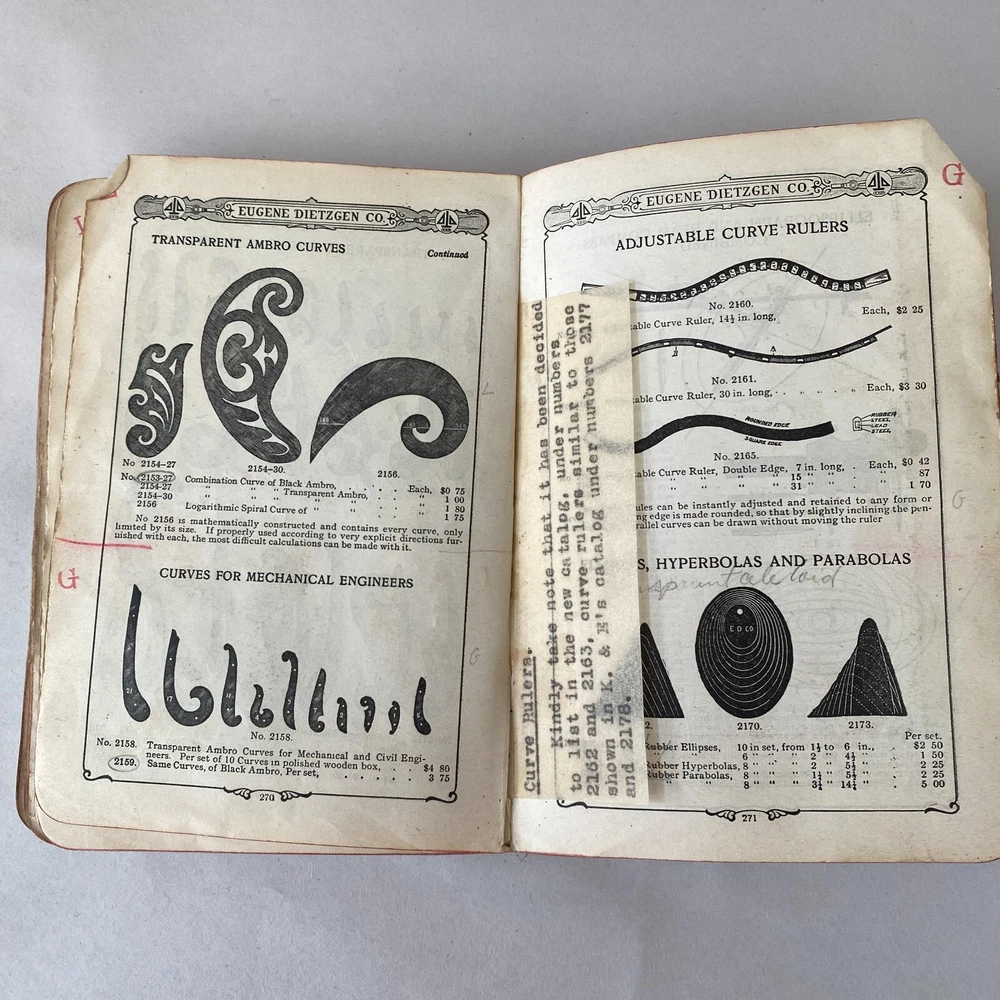 EUGENE DIETZGEN CO.
TRANSPARENT AMBRO CURVES
Continued
No 2154-27
2154-30.
2156.
No. 2153-27 Combination Curve of Black Ambro, . . . . Each, $0 75
2154-27 " " " Transparent Ambro, . . . 1 00
2154-30 " " " " " . . . 1 80
2156 Logarithmic Spiral Curve of " " . . . 1 75
No 2156 is mathematically constructed and contains every curve, only
limited by its size. If properly used according to very explicit directions fur-
nished with each, the most difficult calculations can be made with it.
G
CURVES FOR MECHANICAL ENGINEERS
No. 2158.
No. 2158. Transparent Ambro Curves for Mechanical and Civil Engi-
neers. Per set of 10 Curves in polished wooden box, . . $4 80
2159. Same Curves, of Black Ambro, Per set, . . . . . 3 75
270
Curve Rulers.
Kindly take note that it has been decided
to list in the new catalog, under numbers
2162 and 2163, curve rulers similar to those
shown in K. & E's catalog under numbers 2177
and 2178.
G
EUGENE DIETZGEN CO.
ADJUSTABLE CURVE RULERS
No. 2160.
able Curve Ruler, 14½ in. long, Each, $2 25
No. 2161.
able Curve Ruler, 30 in. long, . . . . . Each, $3 30
ROUNDED EDGE
SQUARE EDGE
RUBBER
STEEL
LEAD
STEEL
No. 2165.
able Curve Ruler, Double Edge, 7 in. long, . Each, $0 42
" " " " 15 " " . " 87
" " " " 31 " " . " 1 70
ules can be instantly adjusted and retained to any form or
ng edge is made rounded, so that by slightly inclining the pen-
rallel curves can be drawn without moving the ruler
G
S, HYPERBOLAS AND PARABOLAS
E D CO
2.
2170.
2173.
Per set.
Rubber Ellipses, 10 in set, from 1½ to 6 in., . $2 50
" " 6 " " " 2 " 4½ " . 1 50
Rubber Hyperbolas, 8 " " " 2 " 5½ " . 2 25
Rubber Parabolas, 8 " " " 1¼ " 5½ " . 2 25
" " 8 " " " 3¼ " 14¼ " . 5 00
271